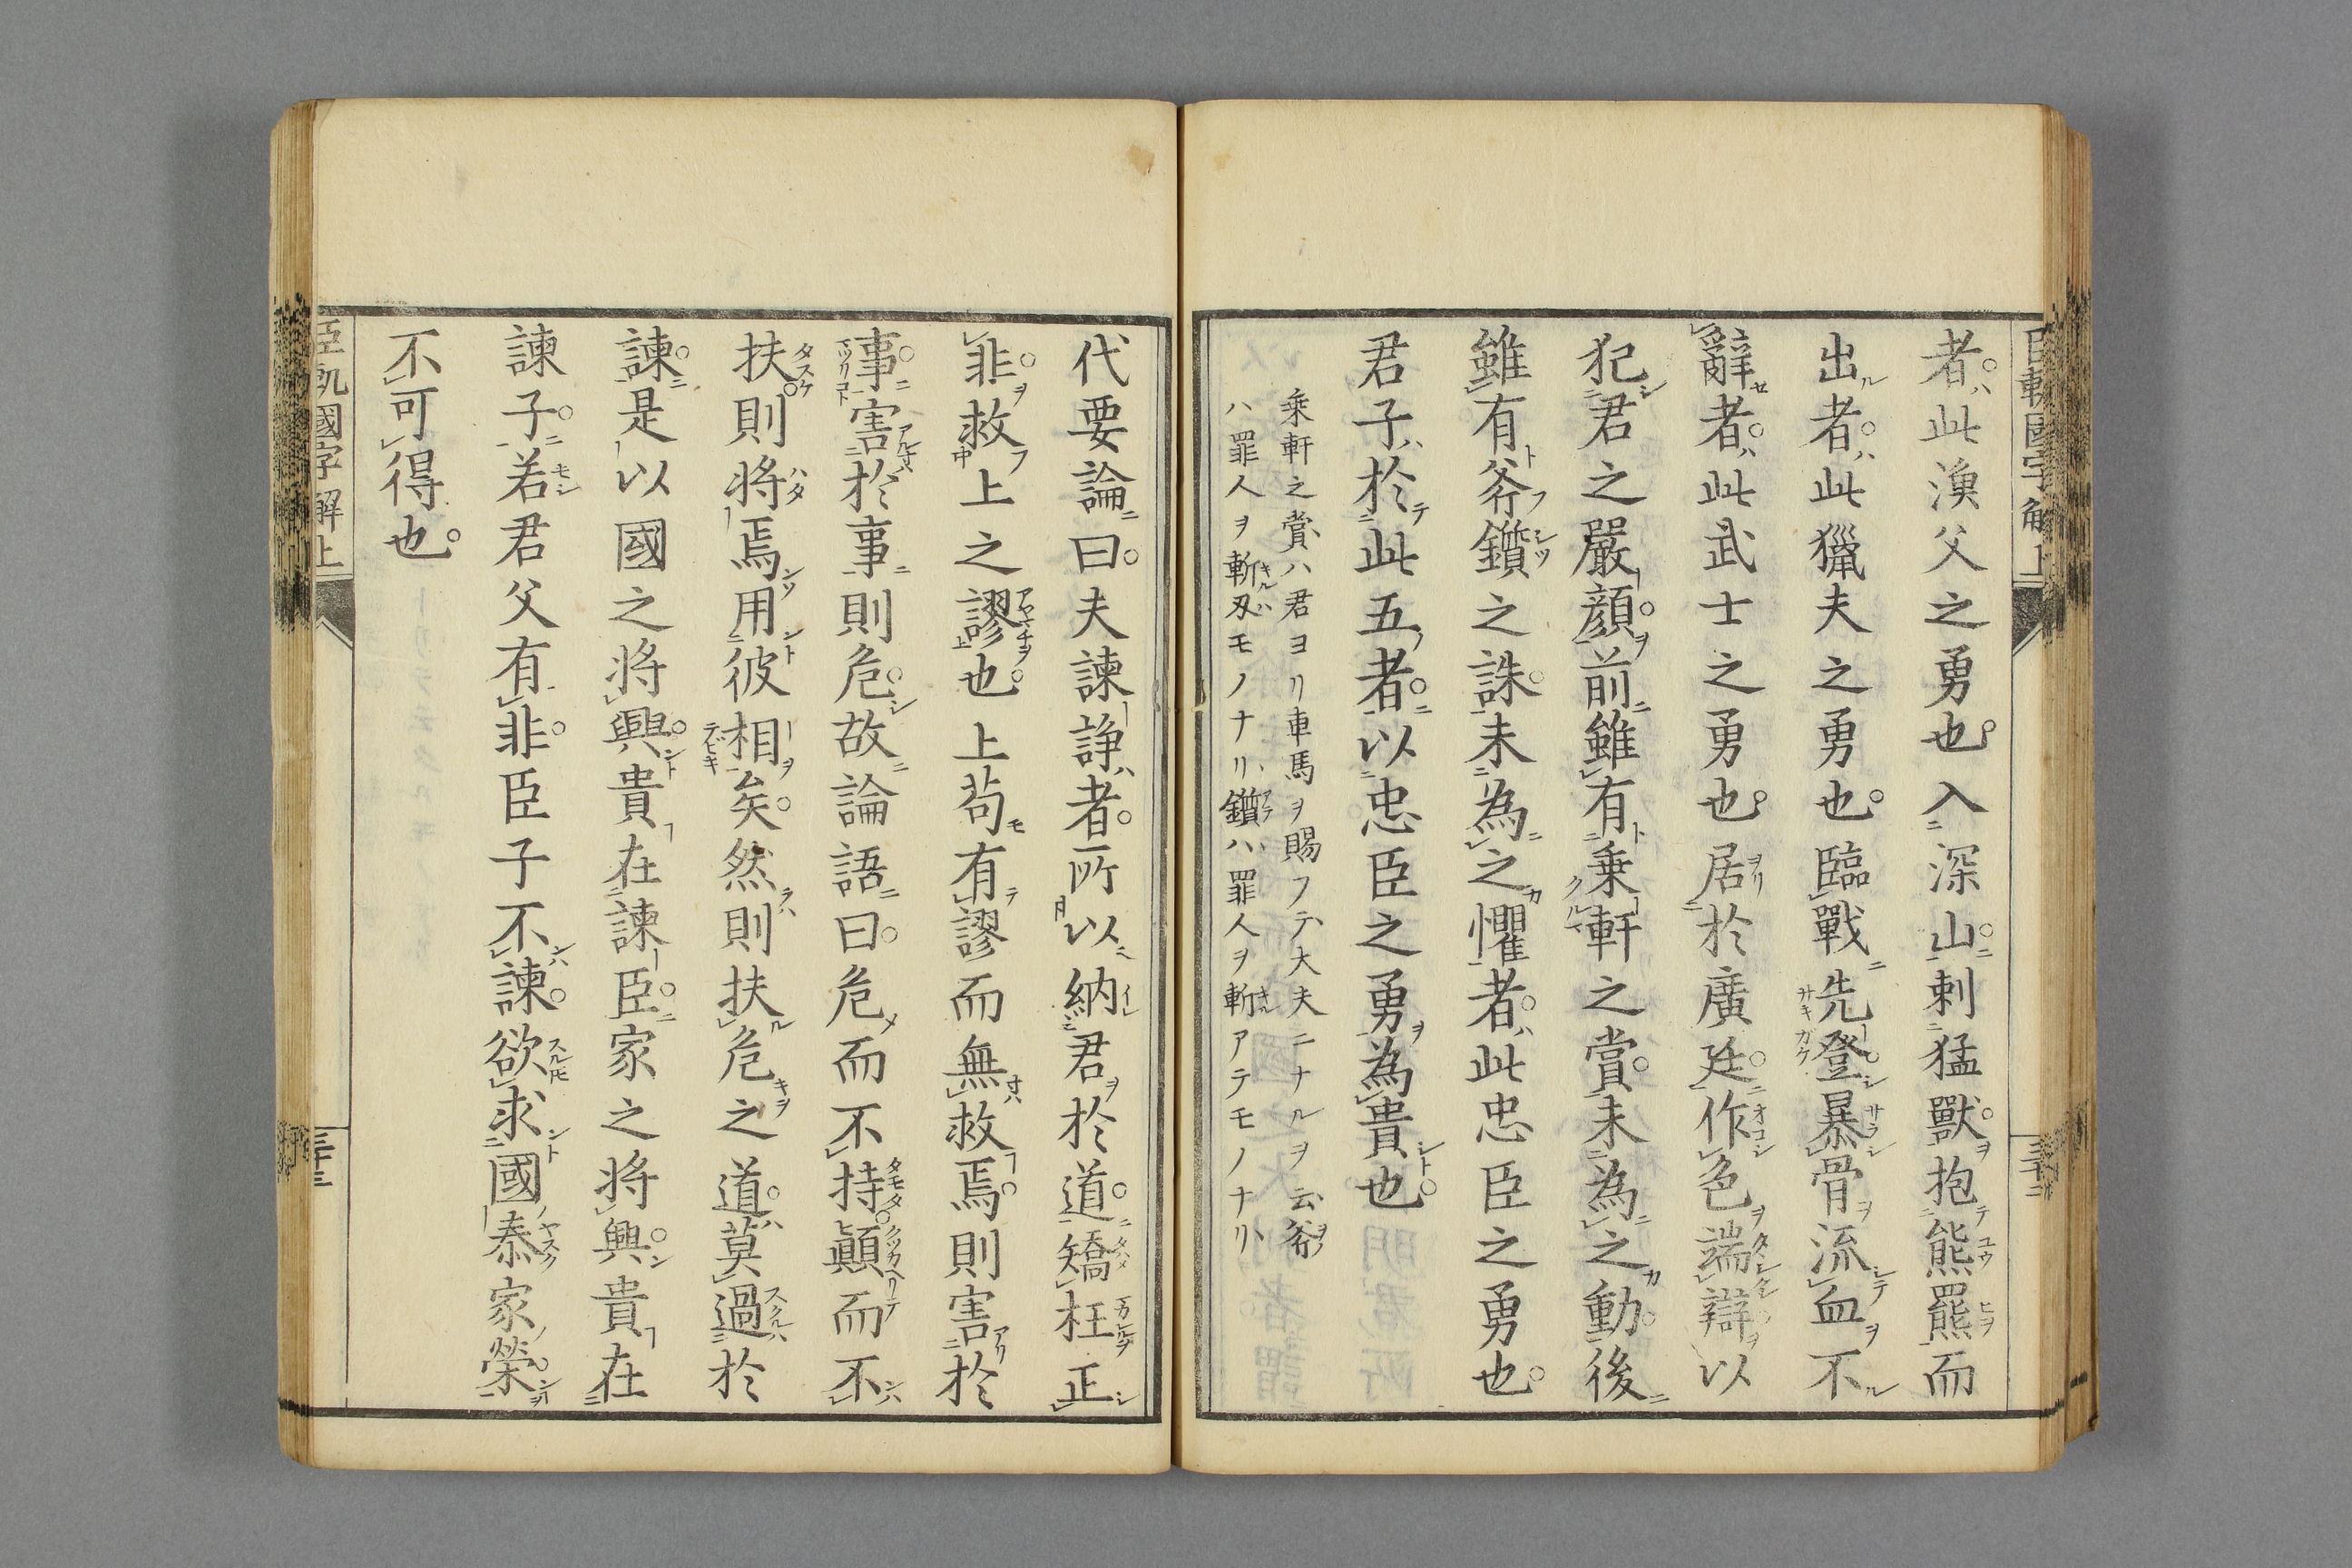 臣軌國字解上
者此漁父之勇也入深山刺猛獸抱熊羆而
出者此獵夫之勇也臨戰先登暴骨流血不
辭者此武士之勇也居於廣廷作色端辯以
犯君之嚴顔前雖有乗軒之賞未為之動後
雖有斧鑕之誅未為之懼者此忠臣之勇也
君子於此五者以忠臣之勇為貴也
乗軒之賞ハ君ヨリ車馬ヲ賜フテ大夫ニナルヲ云斧
ハ罪人ヲ斬刄モノナリ鑕ハ罪人ヲ斬アテモノナリ
代要論曰夫諫諍者所以納君於道矯枉正
非救上之謬也上苟有謬而無救焉則害於
事害於事則危故論語曰危而不持顚而不
扶則將焉用彼相矣然則扶危之道莫過於
諫是以國之將興貴在諫臣家之將興貴在
諫子若君父有非臣子不諫欲求國泰家榮
不可得也
臣軌國字解上
三十三